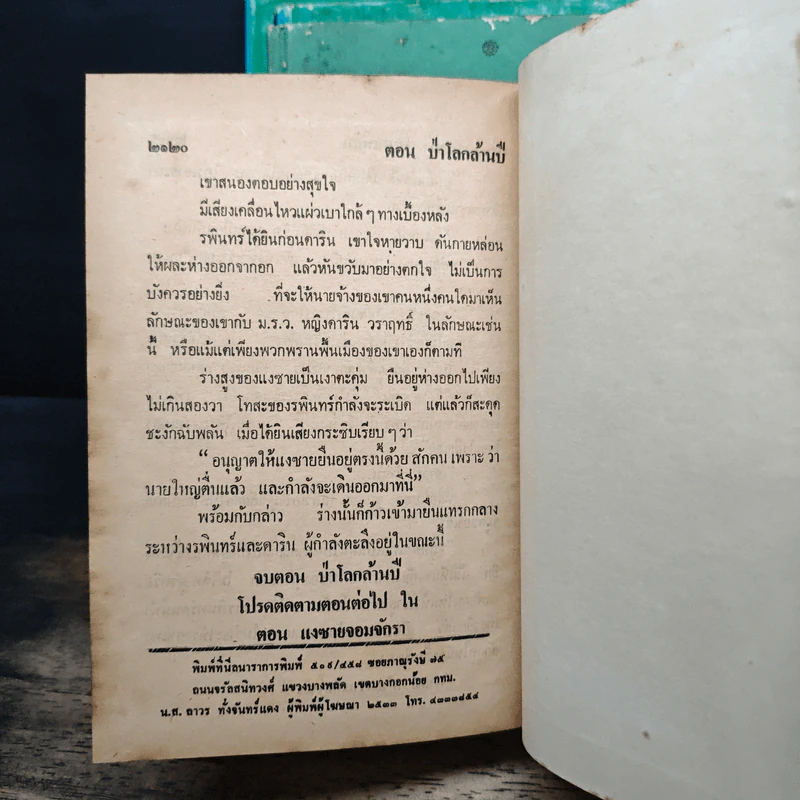 ๒๑๒๐ ตอน ป่าโลกล้านปี
เขาสนองตอบอย่างสุขใจ
มีเสียงเคลื่อนไหวแผ่วเบาใกล้ ๆ ทางเบื้องหลัง
รพินทร์ได้ยินก่อนดาริน เขาใจหายวาบ ดันกายหล่อน
ให้ผละห่างออกจากอก แล้วหันขวับมาอย่างตกใจ ไม่เป็นการ
บังควรอย่างยิ่ง ที่จะให้นายจ้างของเขาคนหนึ่งคนใดมาเห็น
ลักษณะของเขากับ ม.ร.ว. หญิงดาริน วราฤทธิ์ ในลักษณะเช่น
นี้ หรือแม้แต่เพียงพวกพรานพื้นเมืองของเขาเองก็ตามที
ร่างสูงของแงซายเป็นเงาตะคุ่ม ยืนอยู่ห่างออกไปเพียง
ไม่เกินสองวา โทสะของรพินทร์กำลังจะระเบิด แต่แล้วก็สะดุด
ชะงักฉับพลัน เมื่อได้ยินเสียงกระซิบเรียบ ๆ ว่า
“ อนุญาตให้แงซายยืนอยู่ตรงนี้ด้วย สักคน เพราะ ว่า
นายใหญ่ตื่นแล้ว และกำลังจะเดินออกมาที่นี่”
พร้อมกับกล่าว ร่างนั้นก็ก้าวเข้ามายืนแทรกกลาง
ระหว่างรพินทร์และดาริน ผู้กำลังตะลึงอยู่ในขณะนี้
จบตอน ป่าโลกล้านปี
โปรดติดตามตอนต่อไป ใน
ตอน แงซายจอมจักรา
พิมพ์ที่นีลนาราการพิมพ์ ๕๐๑/๔๕๘ ซอยภาณุรังษี ๗๕
ถนนจรัลสนิทวงศ์ แขวงบางพลัด เขตบางกอกน้อย กทม.
น.ส. ถาวร ทั่งจันทร์แดง ผู้พิมพ์ผู้โฆษณา ๒๕๓๓ โทร. ๔๓๓๓๘๕๔